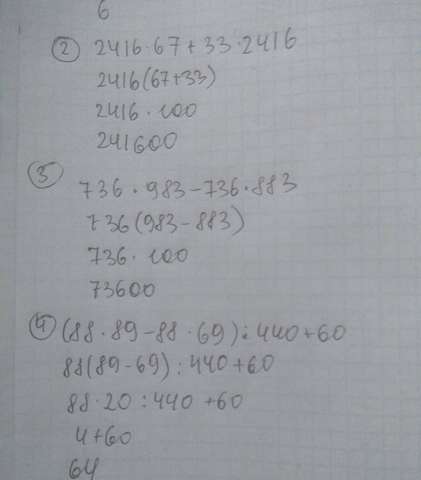 6
② 2416·67+33·2416
2416(67+33)
2416·100
241600
③
736·983-736·883
736(983-883)
736·100
73600
④ (88·89-88·69):440+60
88(89-69):440+60
88·20:440+60
4+60
64